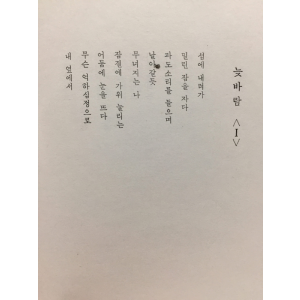 늦바람 <I>
섬에 내려가
밀린 잠을 자다
파도소리를 들으며
날아갈듯
무너지는 나
잠결에 가위 눌리는
어둠에 눈을 뜨다
무슨 억하심정으로
내 멱에서